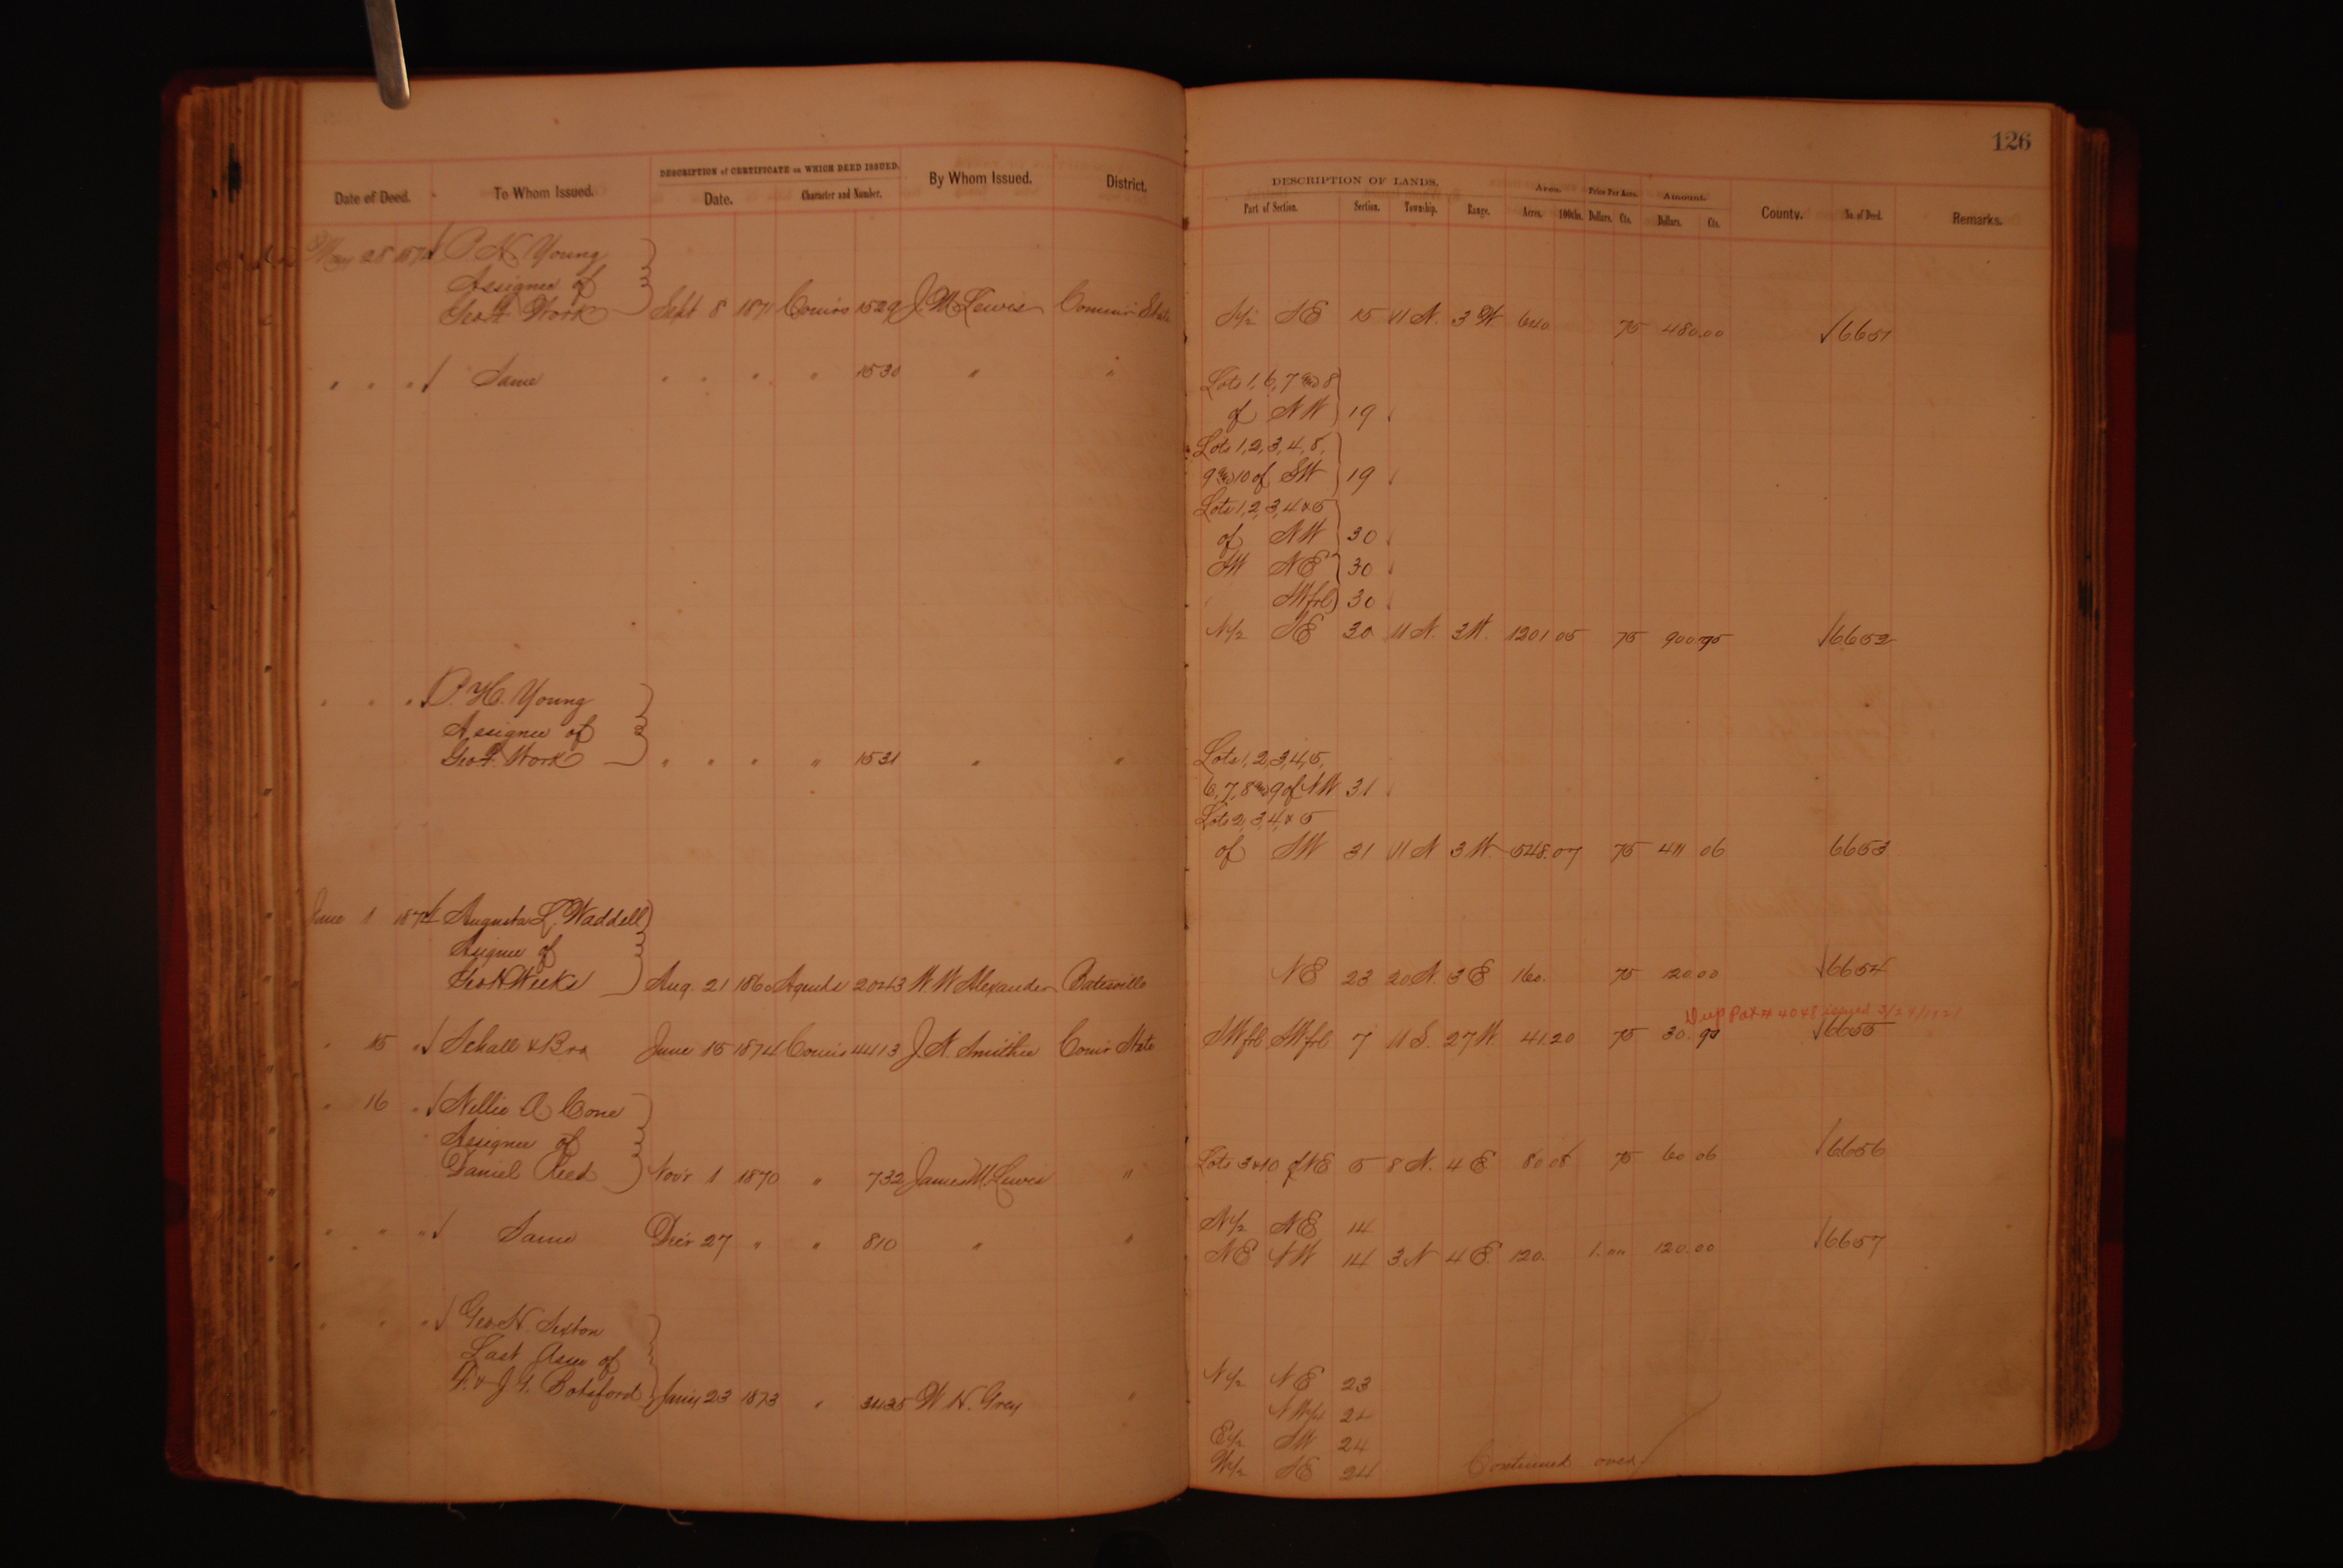 126
DESCRIPTION of CERTIFICATE on WHICH DEED ISSUED.
Date of Deed. To Whom Issued. Date. Character and Number. By Whom Issued. District.
DESCRIPTION OF LANDS. Area. Price Per Acre. Amount.
Part of Section. Section. Township. Range. Acres. 100ths. Dollars. Cts. Dollars. Cts. County. No. of Deed. Remarks.
May 28 1874 P. H. Young
Assignee of
Geo. F. Work Sept 8 1871 Comr's 1529 J. M. Lewis Commr State S½ SE 15 11 N. 3 W 640 75 480.00 6651
" " " Same " " " " 1530 " "
Lots 1, 6, 7 and 8
of NW 19
Lots 1, 2, 3, 4, 8,
9 and 10 of SW 19
Lots 1, 2, 3, 4 & 5
of NW 30
SW NE 30
SW frl 30
N½ SE 30 11 N. 3 W. 1201 05 75 900 75 6652
" " " P. H. Young
Assignee of
Geo. F. Work " " " " 1531 " "
Lots 1, 2, 3, 4, 5,
6, 7, 8 and 9 of NW 31
Lots 2, 3, 4, & 5
of SW 31 11 N 3 W. 548.07 75 411 06 6653
June 1 1874 Augusta L. Waddell
Asignee of
Geo H Weeks Aug. 21 1860 Agents 2043 W. W. Alexander Batesville NE 23 20 N. 3 E 160. 75 120 00 6654
Dup Pat # 4048 issued
" 15 " Schall & Bro June 15 1874 Comrs 4413 J. N. Smithee Comr State SW frl SW frl 7 11 S. 27 W. 41.20 75 30. 90 6655
" 16 " Nellie A Cone
Assignee of
Daniel Reed Nov'r 1 1870 " 732 James M. Lewis " Lots 3 & 10 of NE 5 8 N. 4 E 80 08 75 60 06 6656
" " " Same Dec'r 27 " " 810 " "
N½ NE 14
NE NW 14 3 N 4 E. 120. 1.00 120.00 6657
" " " Geo H. Sexton
Last Asse of
F. & J. F. Botsford Jany 23 1873 " 3435 W. H. Grey "
N½ NE 23
NW¼ 24
E½ SW 24
W½ SE 24 Continued over